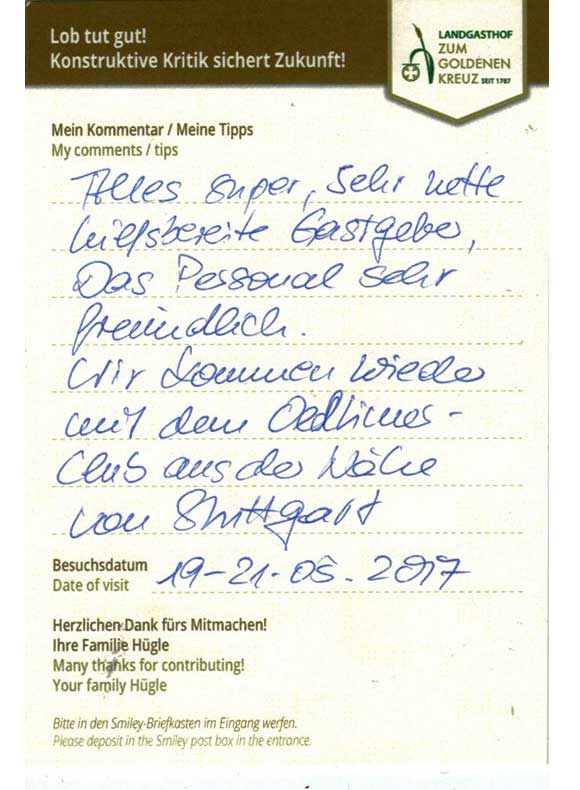 Lob tut gut!
Konstruktive Kritik sichert Zukunft!
LANDGASTHOF
ZUM
GOLDENEN
KREUZ SEIT 1787
Mein Kommentar / Meine Tipps
My comments / tips
Alles super, sehr nette
hilfsbereite Gastgeber,
Das Personal sehr
freundlich.
Wir kommen wieder
mit dem Oldtimer-
Club aus der Nähe
von Stuttgart
Besuchsdatum
Date of visit 19-21-05. 2017
Herzlichen Dank fürs Mitmachen!
Ihre Familie Hügle
Many thanks for contributing!
Your family Hügle
Bitte in den Smiley-Briefkasten im Eingang werfen.
Please deposit in the Smiley post box in the entrance.